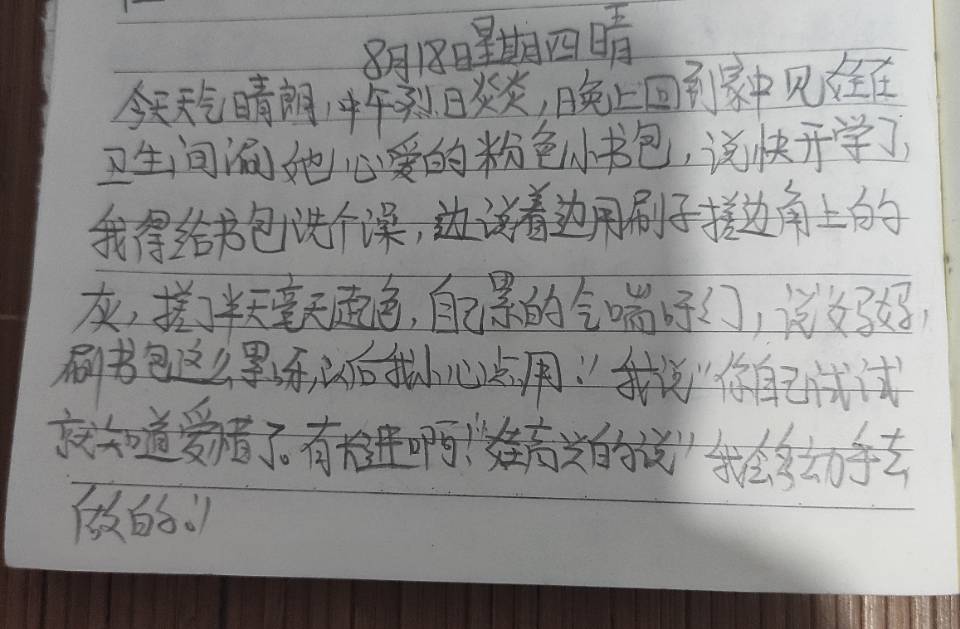 8月18日星期四晴
今天天气晴朗,中午烈日炎炎,晚上回到家中见娃在
卫生间涮她心爱的粉色小书包,说快开学了,
我得给书包洗个澡,边说着边用刷子搓边角上的
灰,搓了半天毫无起色,自己累的气喘吁吁,说"好好,
刷书包这么累呀,以后我小心点用."我说"你自己试试
就知道爱惜了。有长进啊!"娃高兴的说"我会多动手去
做的."